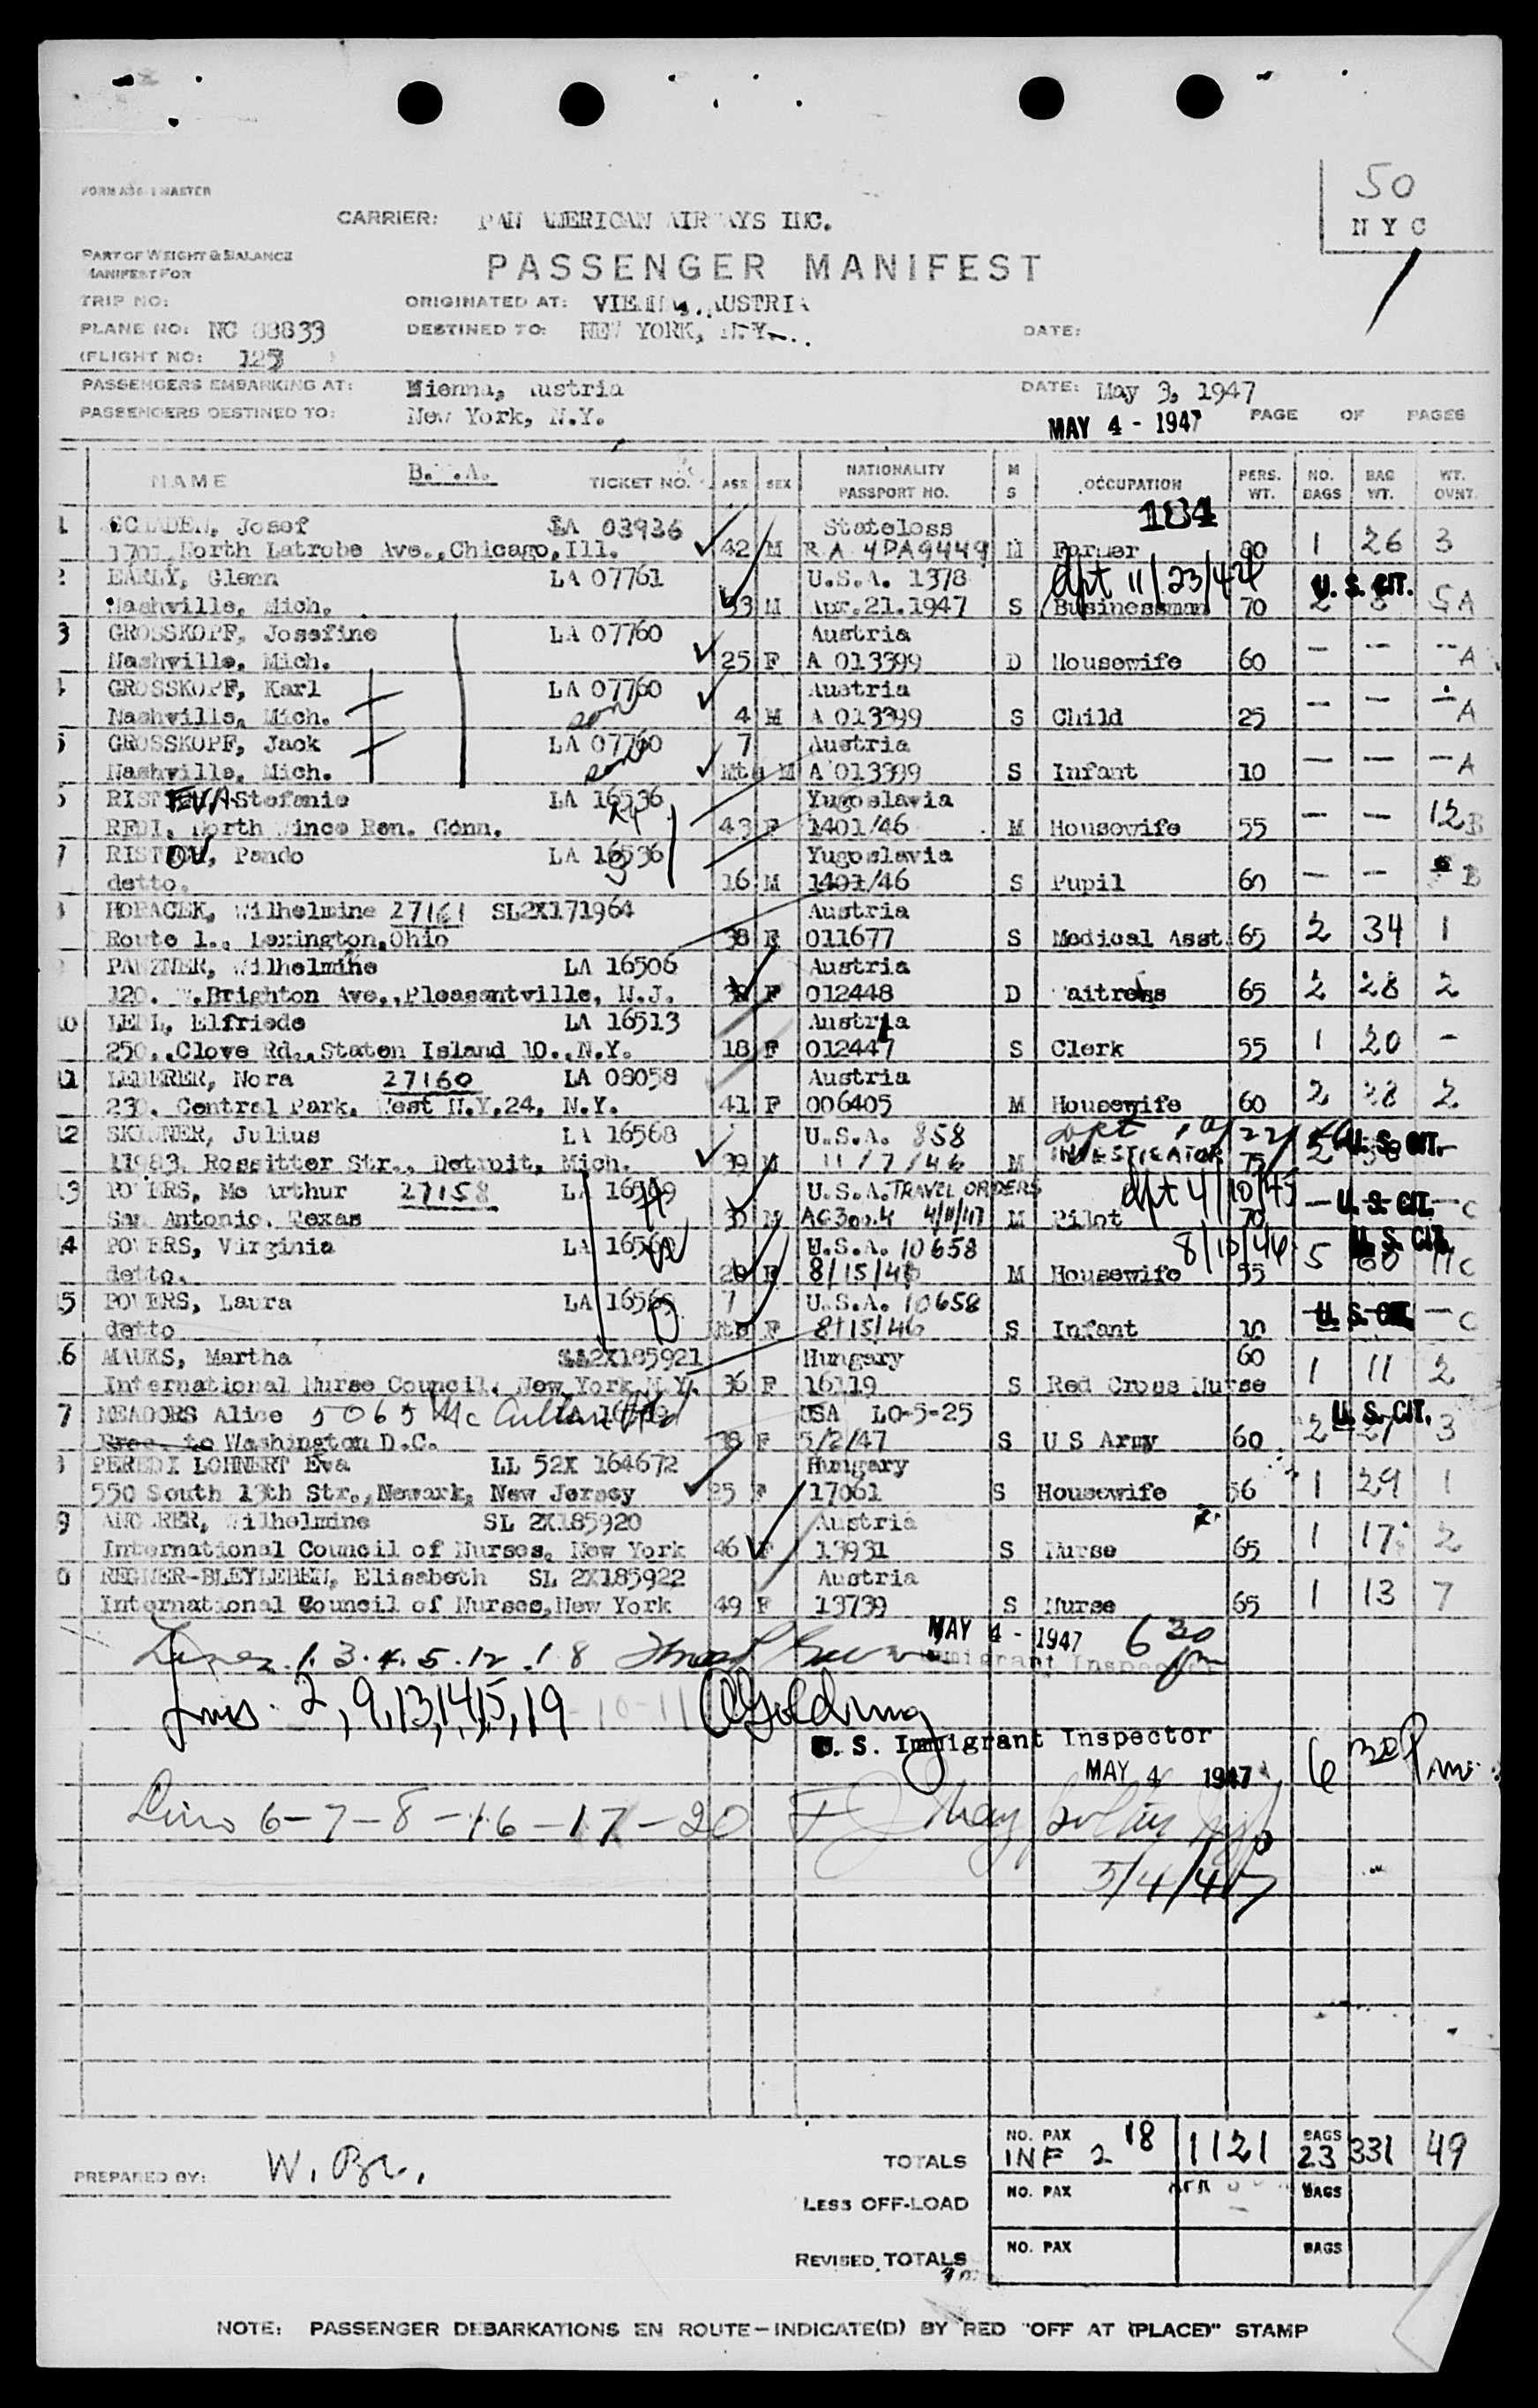 50
NYC
FORM
MASTER
CARRIER: PAN AMERICAN AIRWAYS INC.
PART OF WEIGHT & BALANCE
MANIFEST FOR
PASSENGER MANIFEST
TRIP NO:
ORIGINATED AT: VIENNA, AUSTRIA
PLANE NO: NC 88833
DESTINED TO: NEW YORK, N.Y.
DATE:
(FLIGHT NO: 123
PASSENGERS EMBARKING AT: Vienna, Austria
DATE: May 3, 1947
PASSENGERS DESTINED TO: New York, N.Y.
MAY 4 - 1947 PAGE OF PAGES
NAME TICKET NO. AGE SEX NATIONALITY PASSPORT NO. M S OCCUPATION PERS. WT. NO. BAGS BAG WT. WT. OVNT.
184
1 Josef LA 03936 Stateless
1701 North Latrobe Ave., Chicago, Ill. 42 M RA 4PA9449 M Farmer 80 1 26 3
2 EARLY, Glenn LA 07761 U.S.A. 1378 dpt 11/23/ U.S. CIT.
Nashville, Mich. 33 M Apr.21.1947 S Businessman 70 2 5A
3 GROSSKOPF, Josefine LA 07760 Austria
Nashville, Mich. 25 F A 013399 D Housewife 60 — — — A
4 GROSSKOPF, Karl LA 07760 Austria
Nashville, Mich. son 4 M A 013399 S Child 25 — — — A
5 GROSSKOPF, Jack LA 07760 7 Austria
Nashville, Mich. son Mts M A 013399 S Infant 10 — — — A
6 RISTEVA Stefanie LA 16536 Yugoslavia
REDI, North Conn. 43 F 1401/46 M Housewife 55 — — 12B
7 RISTOV, Pando LA 16536 Yugoslavia
detto. 16 M 1401/46 S Pupil 60 — — B
8 HORACEK, Wilhelmine 27161 SL2X171964 Austria
Route 1., Lexington, Ohio 38 F 011677 S Medical Asst. 65 2 34 1
9 PANZNER, Wilhelmine LA 16506 Austria
120. W.Brighton Ave., Pleasantville, N.J. F 012448 D Waitress 65 2 28 2
10 LEDL, Elfriede LA 16513 Austria
250., Clove Rd., Staten Island 10., N.Y. 18 F 012447 S Clerk 55 1 20 -
11 LEDERER, Nora 27160 LA 08058 Austria
230. Central Park, West N.Y.24, N.Y. 41 F 006405 M Housewife 60 2 38 2
12 SKINNER, Julius LA 16568 U.S.A. 858 dpt U.S. CIT.
11983. Rossitter Str., Detroit, Mich. 39 M 11/7/46 M INVESTIGATOR 75 2
13 POWERS, Mc Arthur 27158 LA 16569 U.S.A. TRAVEL ORDERS dpt 4/10/45 U.S. CIT.
San Antonio, Texas M AG300.4 4/11/47 M Pilot 70 — — C
14 POWERS, Virginia LA 16569 U.S.A. 10658 8/10/46 U.S. CIT.
detto. F 8/15/46 M Housewife 55 5 60 11C
15 POWERS, Laura LA 16569 7 U.S.A. 10658 U.S. CIT.
detto Mts F 8/15/46 S Infant 10 — C
16 MAUKS, Martha SL2X185921 Hungary 60
International Nurse Council, New York N.Y. 36 F 16119 S Red Cross Nurse 1 11 2
17 MEADORS Alice 5065 Mc USA LO-5-25 U.S. CIT.
Washington D.C. 38 F 5/2/47 S U S Army 60 2 27 3
PEREDI LOHNERT Eva LL 52X 164672 Hungary
550 South 13th Str., Newark, New Jersey 25 F 17061 S Housewife 56 1 29 1
19 Wilhelmine SL 2X185920 Austria
International Council of Nurses, New York 46 F 13931 S Nurse 65 1 17 2
20 REGNER-BLEYLEBEN, Elisabeth SL 2X185922 Austria
International Council of Nurses, New York 49 F 13739 S Nurse 65 1 13 7
MAY 4 - 1947 6 30 pm
Lines 1. 3. 4. 5. 12. 18
Immigrant Inspector
Lines 2, 9, 13, 14, 15, 19 - 10-11 Golding
U. S. Immigrant Inspector
MAY 4 1947 6 30 Pm
Lines 6-7-8-16-17-20
5/4/47
PREPARED BY: W. Br.
TOTALS NO. PAX INF 2 18 1121 BAGS 23 331 49
LESS OFF-LOAD NO. PAX BAGS
REVISED TOTALS NO. PAX BAGS
NOTE: PASSENGER DEBARKATIONS EN ROUTE—INDICATE(D) BY RED "OFF AT (PLACE)" STAMP